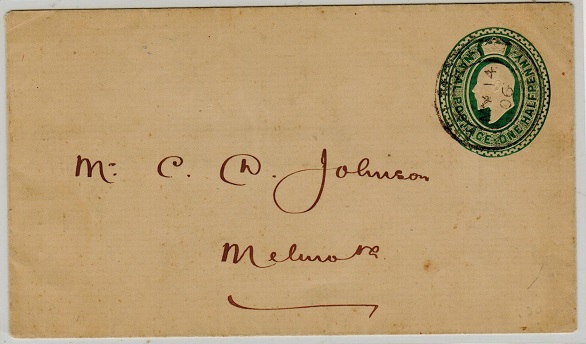 NATAL POSTAGE ONE HALFPENNY
MY 14
06
Mr. C. D. Johnson
Melmoth